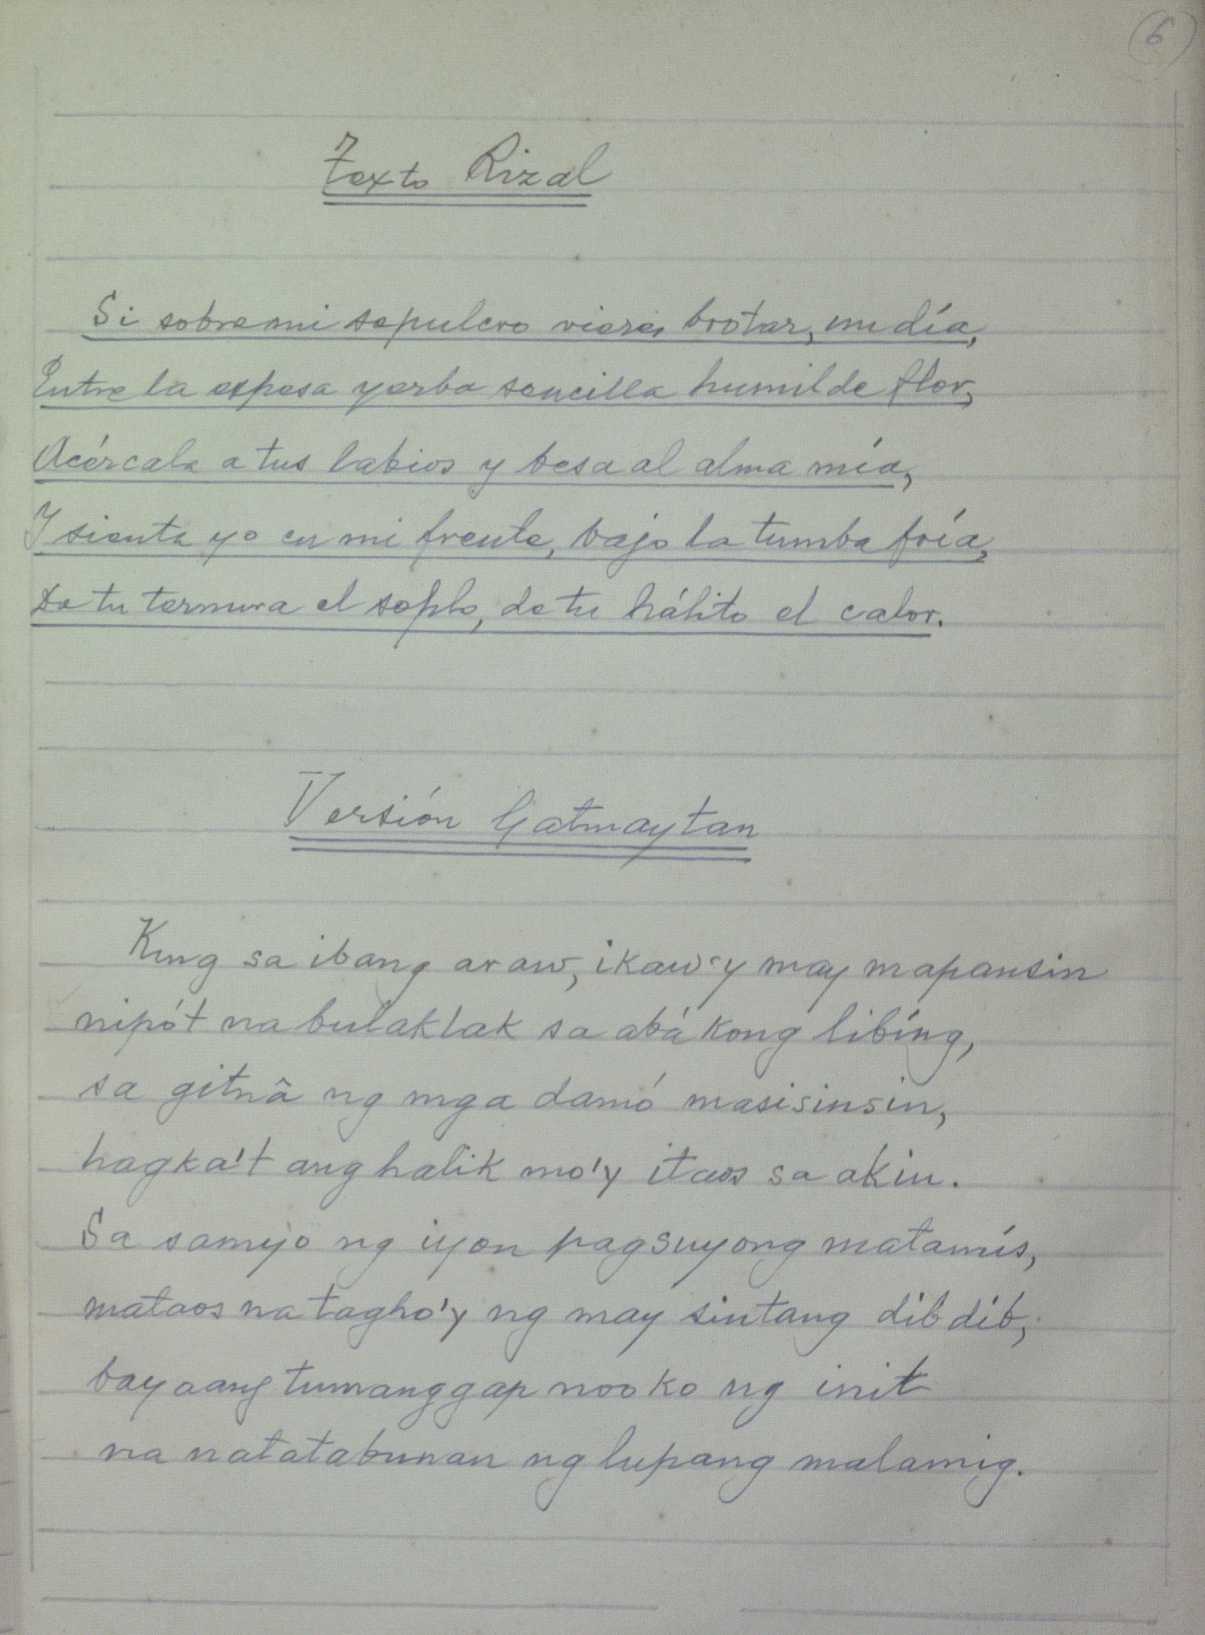 6
Texto Rizal
Si sobre mi sepulcro vieres brotar, un día,
Entre la espesa yerba sencilla humilde flor,
Acércala a tus labios y besa al alma mía,
Y sienta yo en mi frente, bajo la tumba fría,
De tu ternura el soplo, de tu hálito el calor.
Versión Gatmaytan
Kung sa ibang araw, ikaw'y may mapansin
nipót na bulaklak sa abá kong libíng,
sa gitnâ ng mga damó masisinsin,
hagka't ang halik mo'y itaos sa akin.
Sa samyo ng iyon pagsuyong matamís,
mataos na tagho'y ng may sintang dibdib,
bayaang tumanggap noo ko ng init
na natatabunan ng lupang malamig.